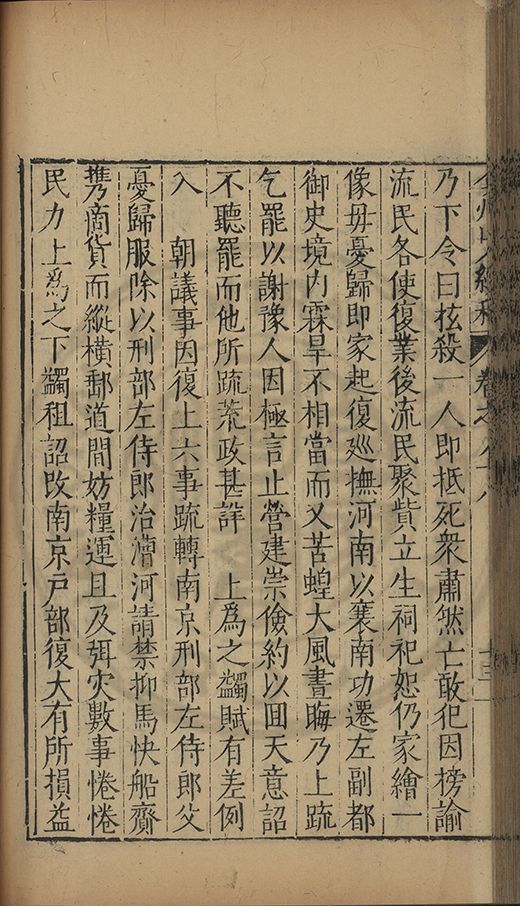 乃下令曰枉殺一人即抵死衆肅然亡敢犯因榜諭
流民各使復業後流民聚貲立生祠祀恕仍家繪一
像毋憂歸即家起復廵撫河南以襄南功遷左副都
御史境内霖旱不相當而又苦蝗大風晝晦乃上疏
乞罷以謝豫人因極言止營建崇儉約以囬天意詔
不聽罷而他所疏荒政甚詳　上爲之蠲賦有差例
入　朝議事因復上六事疏轉南京刑部左侍郎父
憂歸服除以刑部左侍郎治漕河請禁抑馬快船齎
携啇貨而縱橫郵道間妨糧運且及弭灾數事惓惓
民力上爲之下蠲租詔改南京戸部復大有所損益